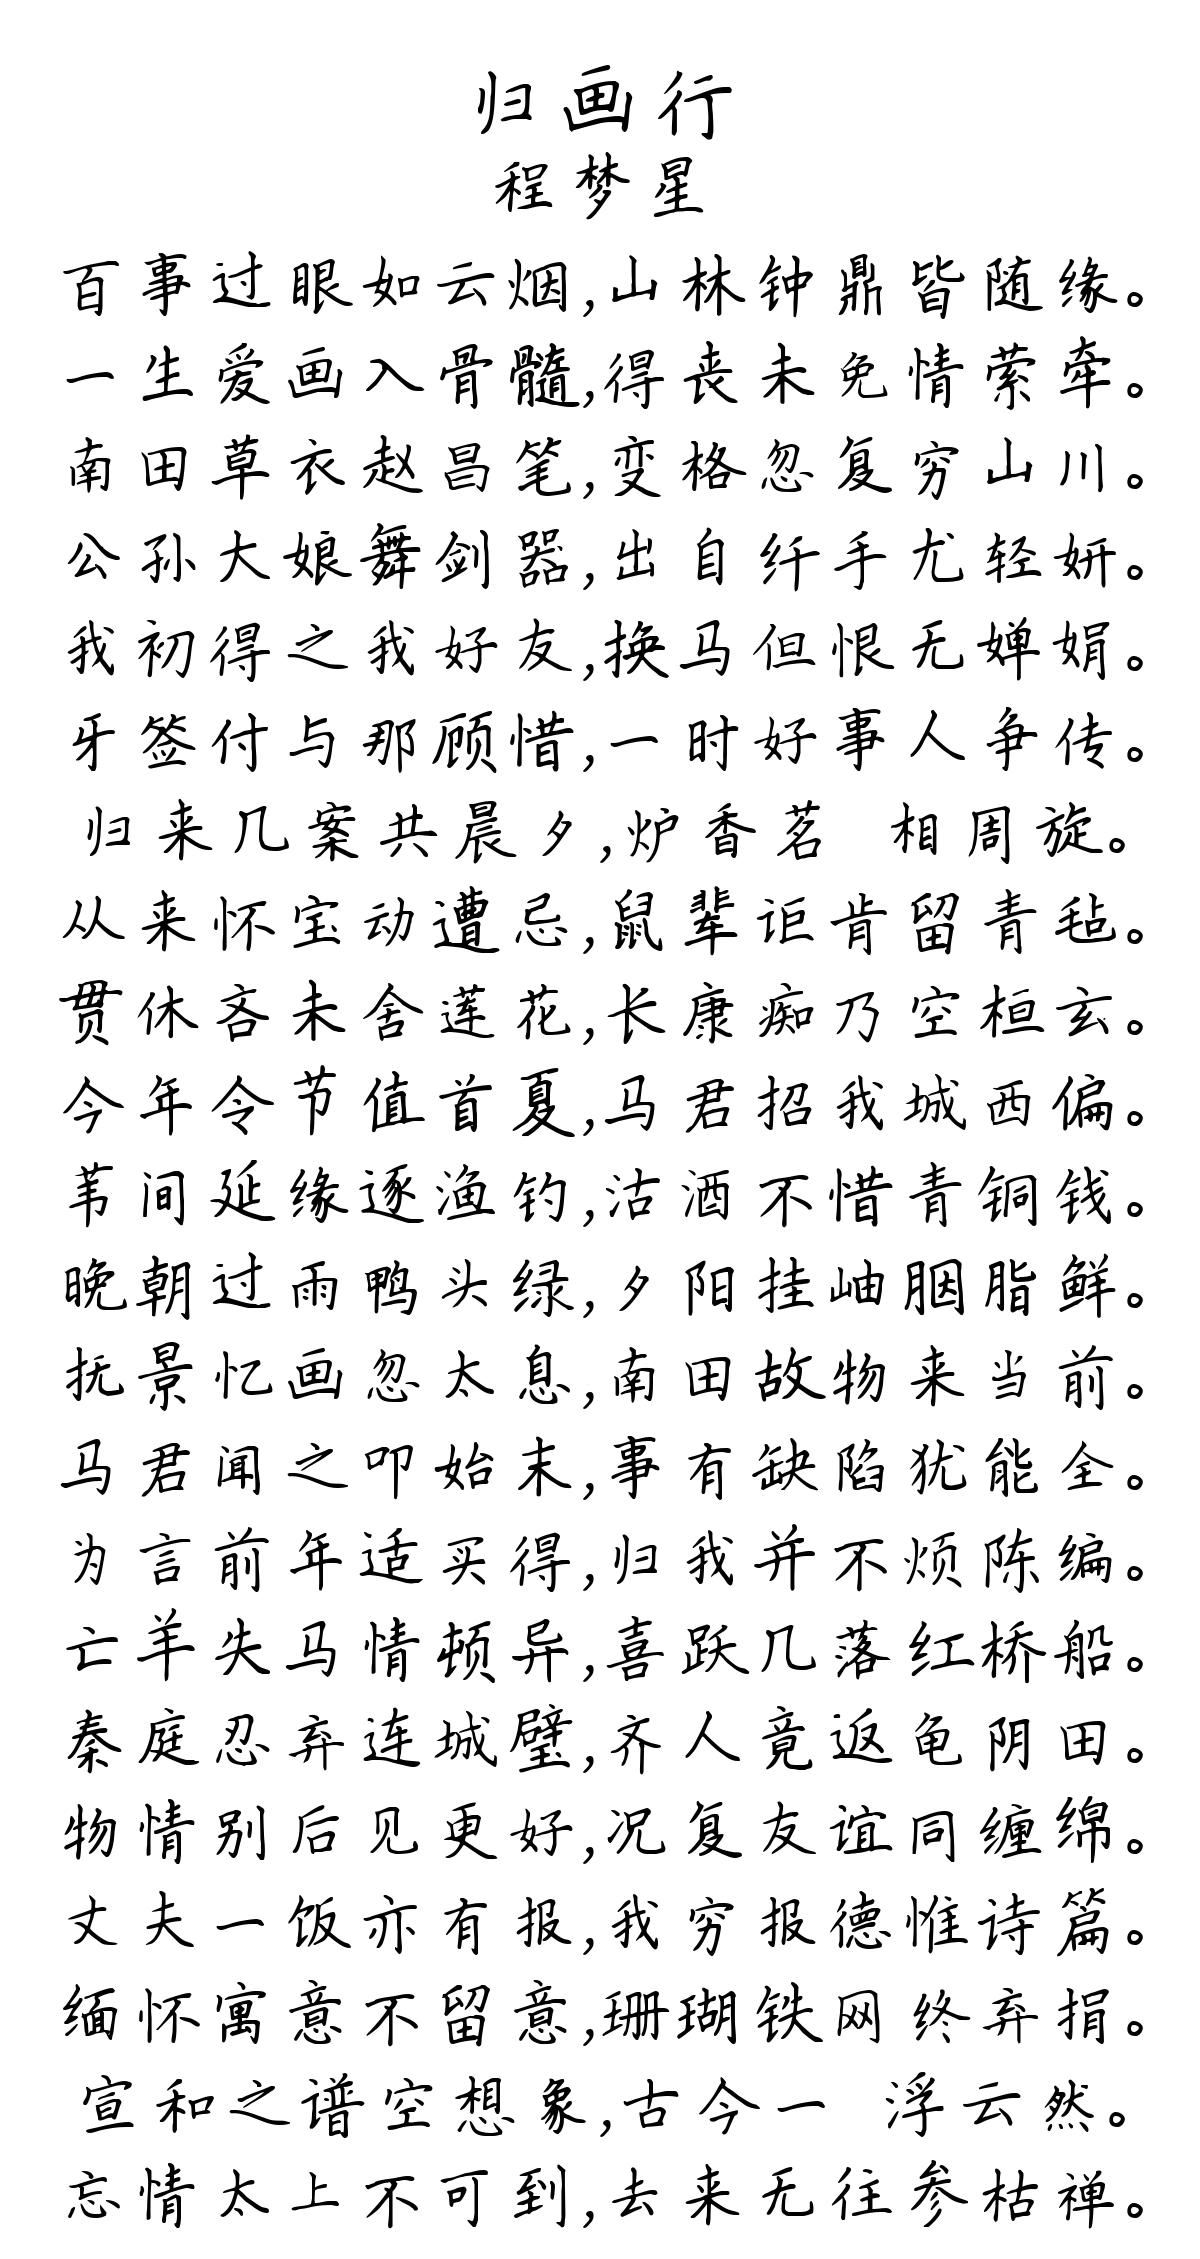 归画行
程梦星
百事过眼如云烟,山林钟鼎皆随缘。
一生爱画入骨髓,得丧未免情萦牵。
南田草衣赵昌笔,变格忽复穷山川。
公孙大娘舞剑器,出自纤手尤轻妍。
我初得之我好友,换马但恨无婵娟。
牙签付与那顾惜,一时好事人争传。
归来几案共晨夕,炉香茗 相周旋。
从来怀宝动遭忌,鼠辈讵肯留青毡。
贯休吝未舍莲花,长康痴乃空桓玄。
今年令节值首夏,马君招我城西偏。
苇间延缘逐渔钓,沽酒不惜青铜钱。
晚朝过雨鸭头绿,夕阳挂岫胭脂鲜。
抚景忆画忽太息,南田故物来当前。
马君闻之叩始末,事有缺陷犹能全。
为言前年适买得,归我并不烦陈编。
亡羊失马情顿异,喜跃几落红桥船。
秦庭忍弃连城璧,齐人竟返龟阴田。
物情别后见更好,况复友谊同缠绵。
丈夫一饭亦有报,我穷报德惟诗篇。
缅怀寓意不留意,珊瑚铁网终弃捐。
宣和之谱空想象,古今一 浮云然。
忘情太上不可到,去来无往参枯禅。